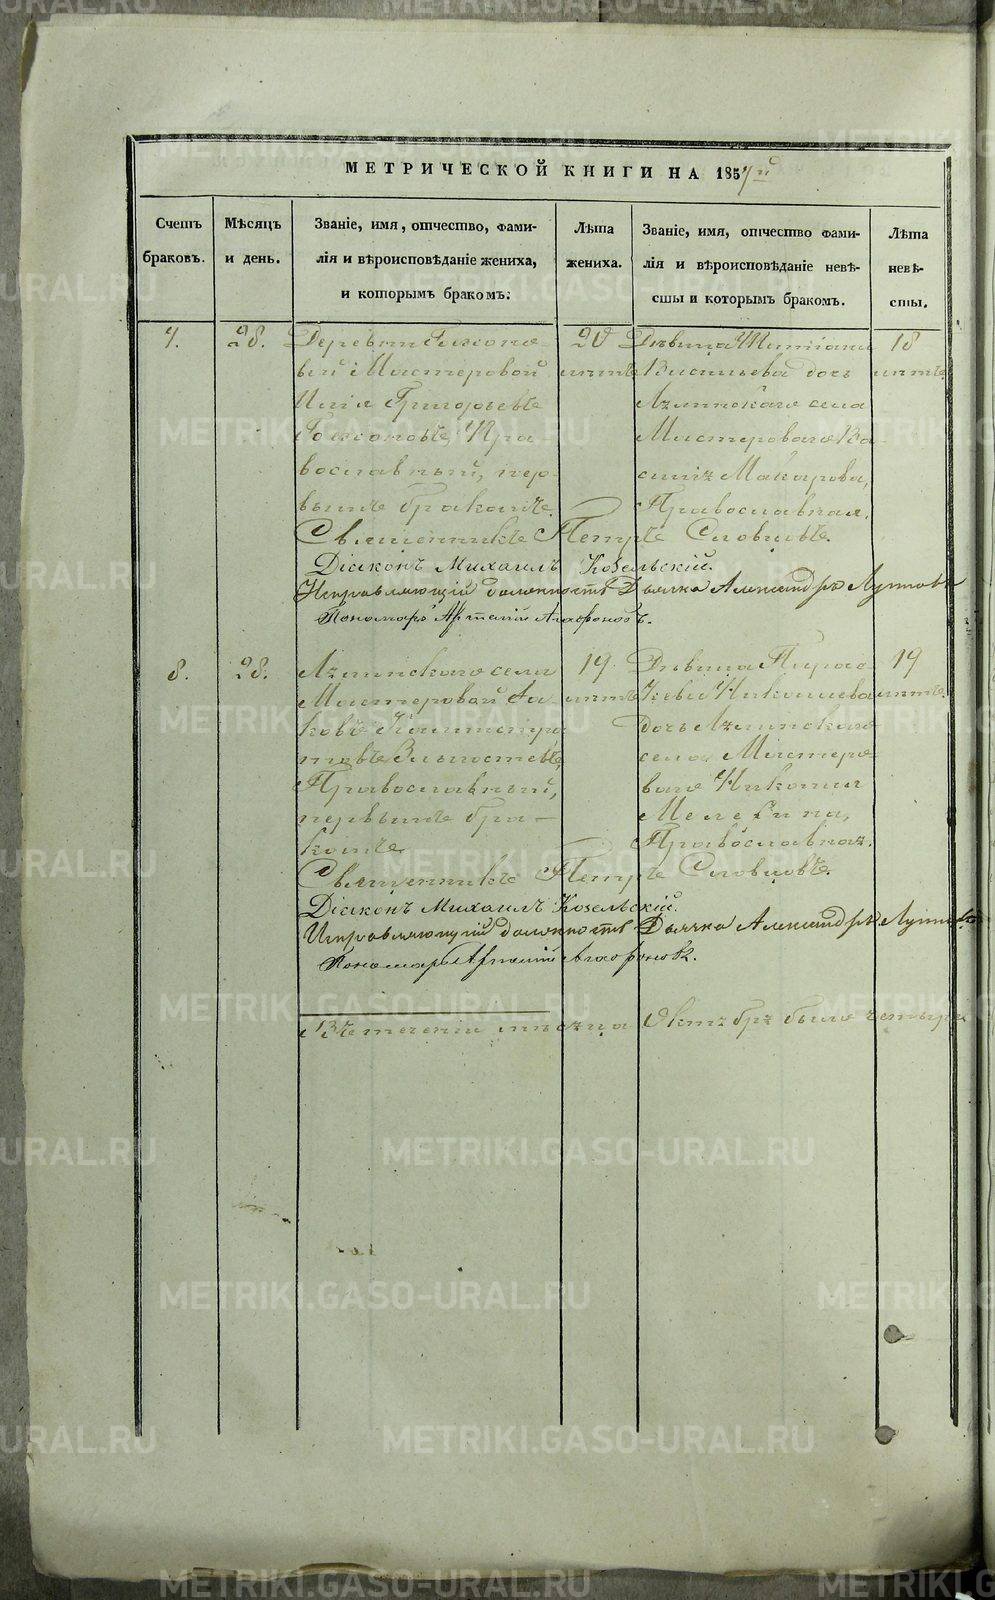 МЕТРИЧЕСКОЙ КНИГИ НА 1857й
Счетъ браковъ.
Мѣсяцъ и день.
Званіе, имя, отчество, фами-
лія и вѣроисповѣданіе жениха,
и которымъ бракомъ:
Лѣта
жениха.
Званіе, имя, отчество фами-
лія и вѣроисповѣданіе невѣ-
сты и которымъ бракомъ.
Лѣта
невѣ-
сты.
7.
28.
Деревни
вой Мастеровой
Илія Григорьевъ
Пра-
вославный, пер-
вымъ бракомъ.
20
лѣтъ
Дѣвица
Васильева дочь
села
Мастероваго Ва-
силія Макарова,
Православная.
18
лѣтъ
Священникъ Петръ Словцовъ.
Діаконъ Михаилъ Козельскій.
Исправляющій должность Дьячка Александръ
Пономарь Артемій Агафоновъ.
8.
28.
села
Мастеровой Іа-
ковъ
Православный,
первымъ бра-
комъ.
19.
лѣтъ
Дѣвица Парас-
кева Николаева
дочь
села Мастеро-
ваго Николая
Православная.
19
лѣтъ
Священникъ Петръ Словцовъ.
Діаконъ Михаилъ Козельскій.
Исправляющій должность Дьячка Александръ
Пономарь Артемій Агафоновъ.
Въ теченіи мѣсяца Октября было четыре
METRIKI.GASO-URAL.RU